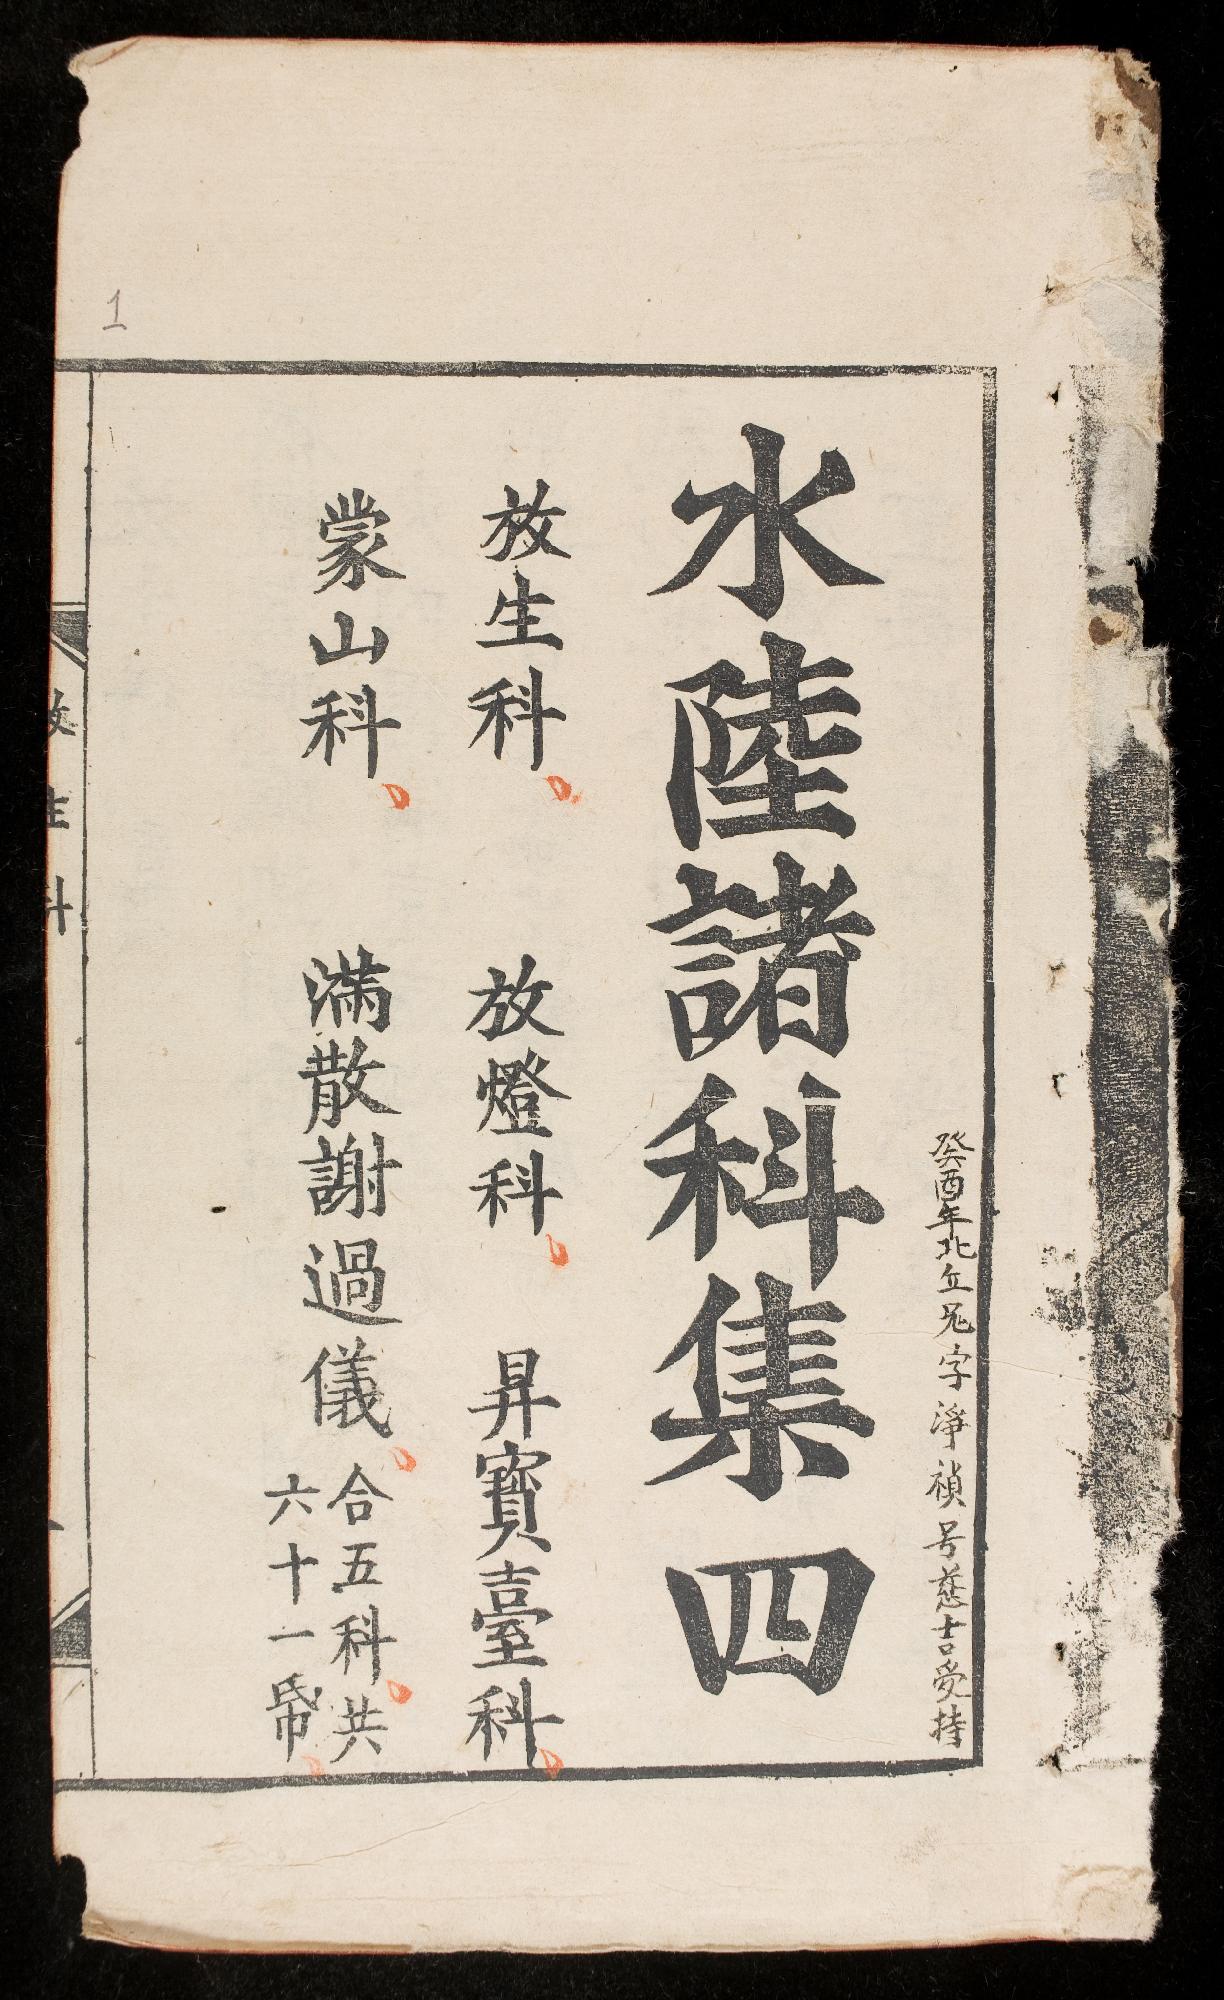 癸酉年北丘兄字淨禎号慈吉受持
水陸諸科集四
放生科 放燈科 昇寶臺科
蒙山科 滿散謝過儀 合五科共
六十一帋
放生科
1